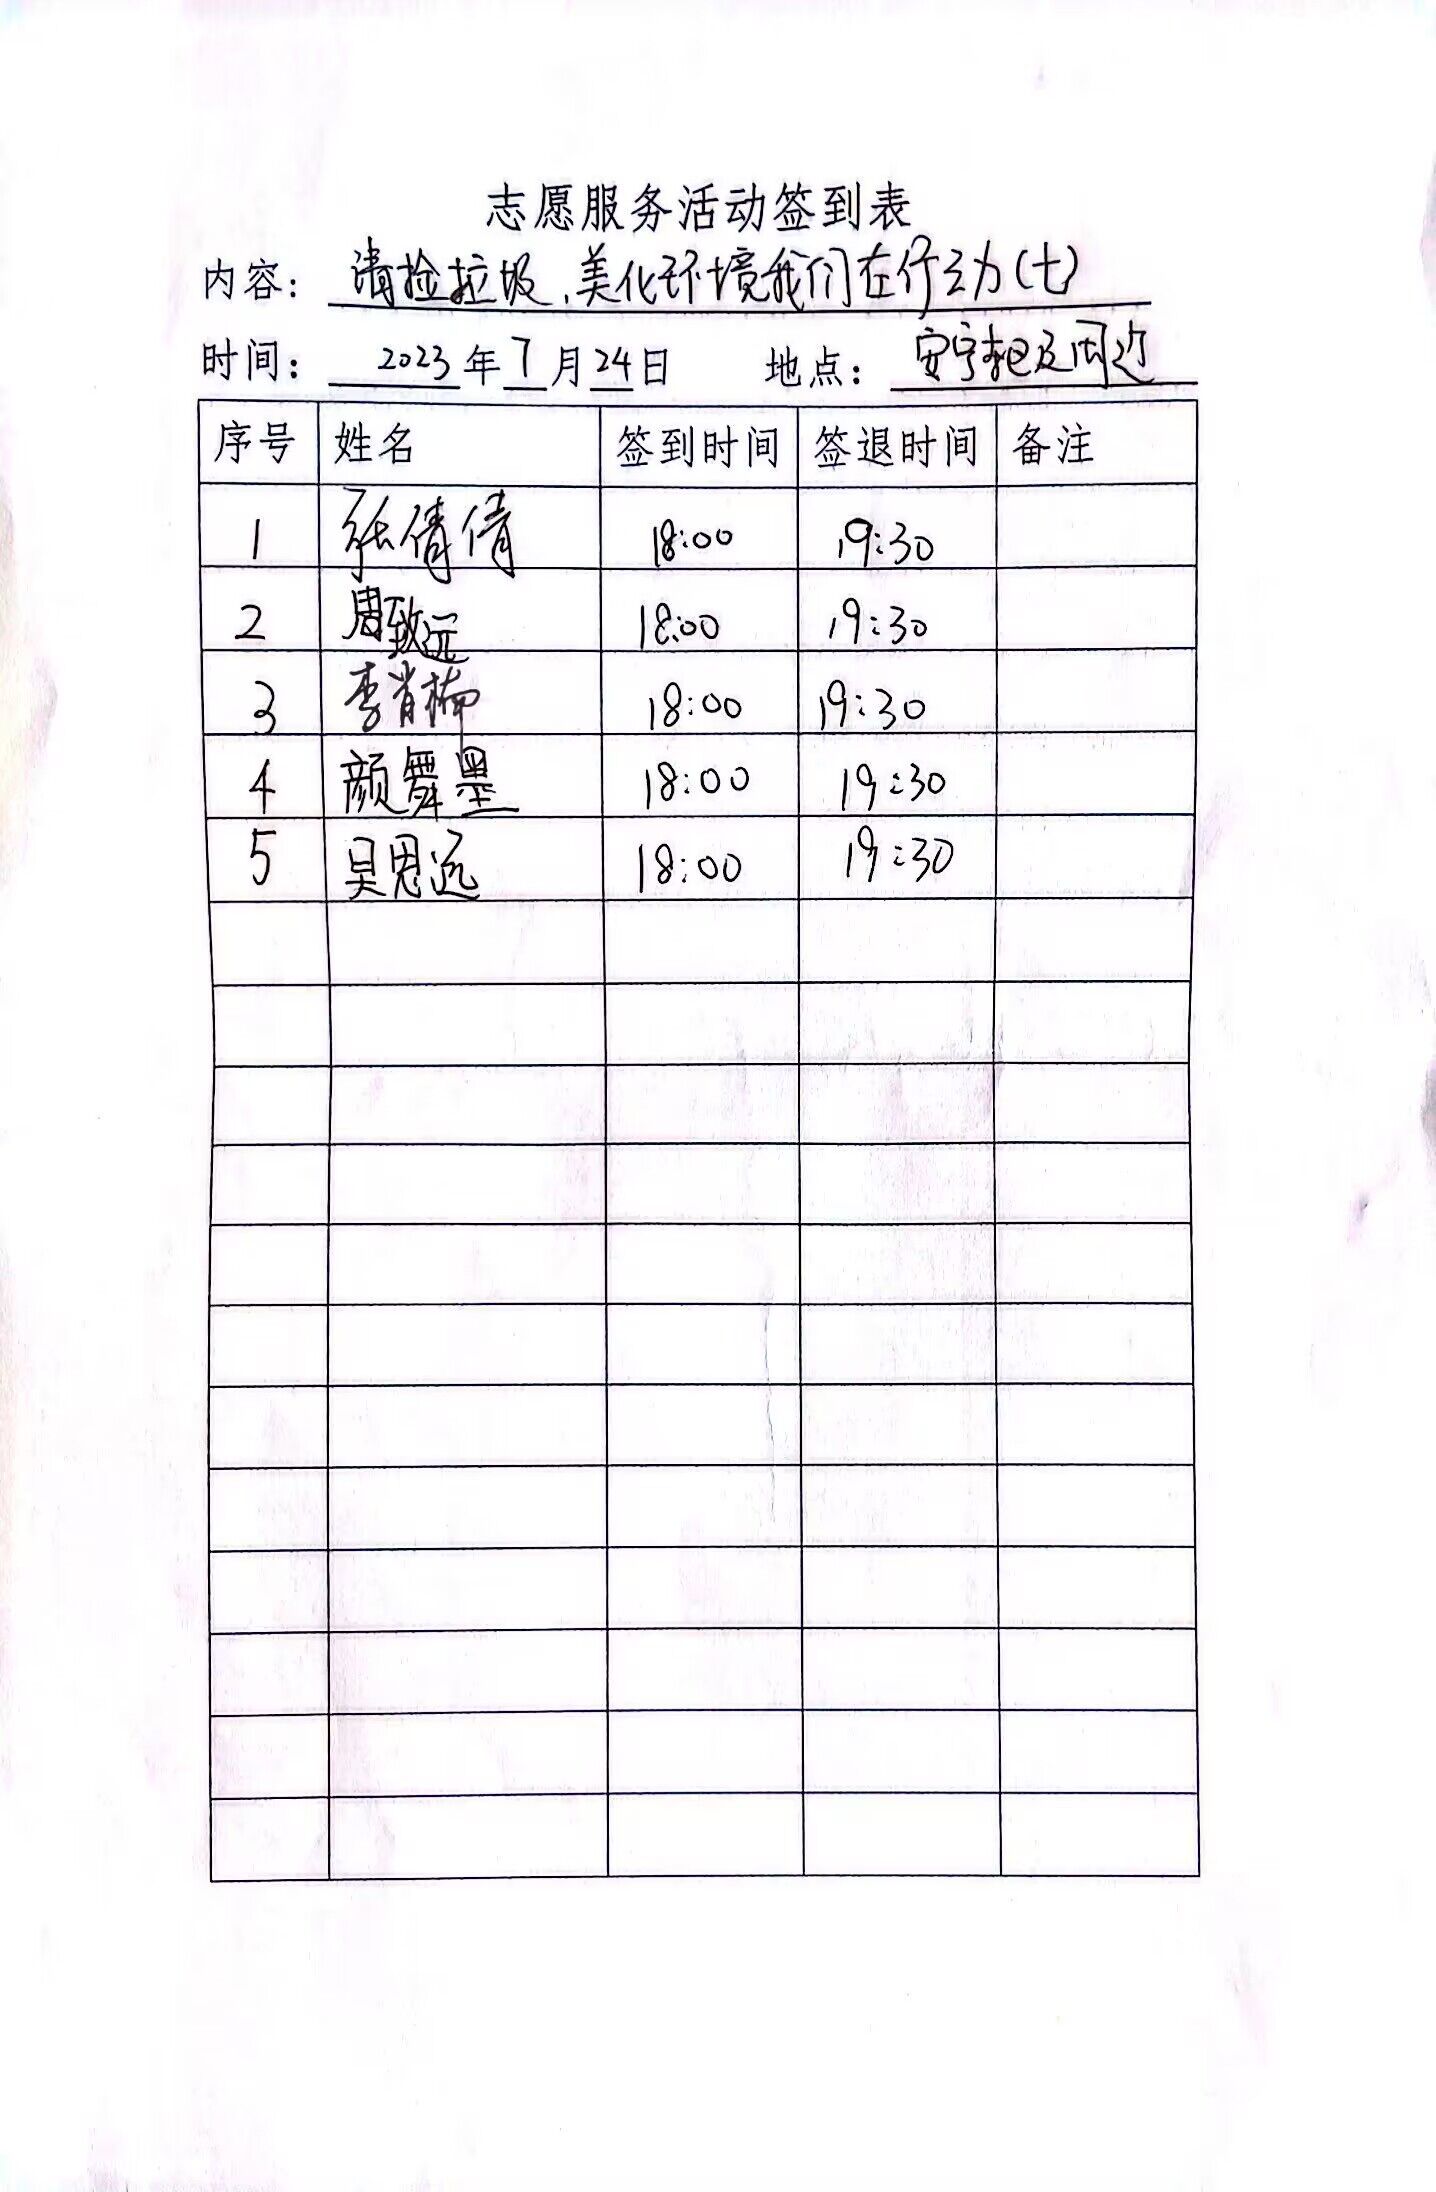 志愿服务活动签到表
内容: 清捡垃圾、美化环境我们在行动(七)
时间: 2023年7月24日 地点: 安宁杞及周边
序号 姓名 签到时间 签退时间 备注
1 张倩倩 18:00 19:30
2 周致远 18:00 19:30
3 李肖楠 18:00 19:30
4 颜舞墨 18:00 19:30
5 吴恩远 18:00 19:30